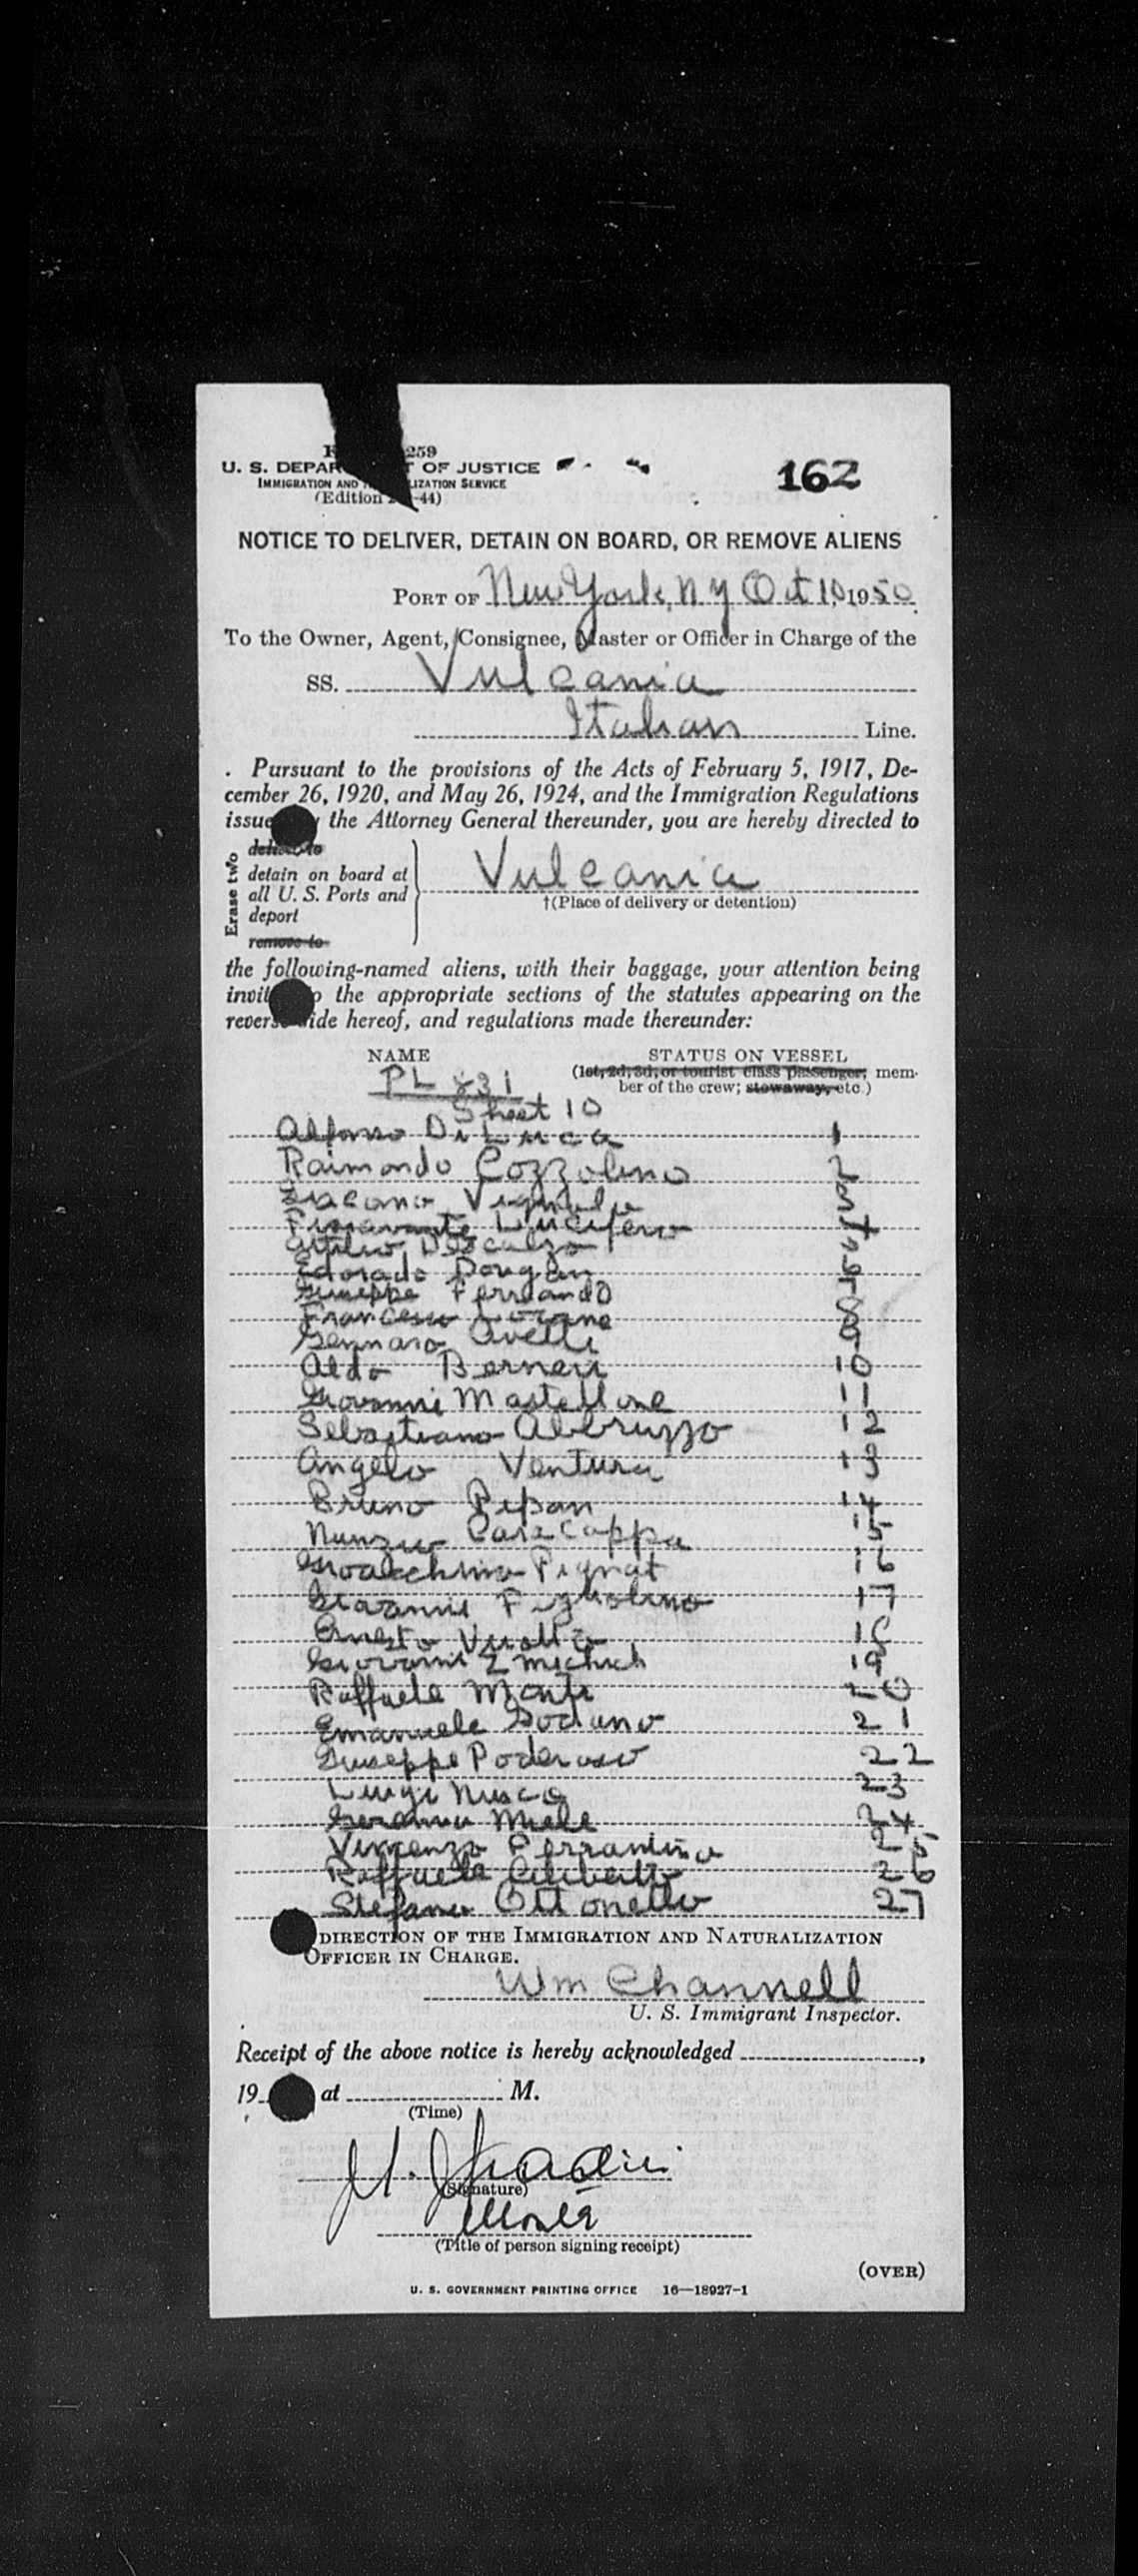 259
U. S. DEPAR T OF JUSTICE
IMMIGRATION AND LIZATION SERVICE
(Edition -44)
162
NOTICE TO DELIVER, DETAIN ON BOARD, OR REMOVE ALIENS
PORT OF New York, N Y Oct 10, 1950
To the Owner, Agent, Consignee, Master or Officer in Charge of the
SS. Vulcania
Italian Line.
Pursuant to the provisions of the Acts of February 5, 1917, De-
cember 26, 1920, and May 26, 1924, and the Immigration Regulations
issue the Attorney General thereunder, you are hereby directed to
Erase two
deliver to
detain on board at
all U. S. Ports and
deport
remove to
Vulcania
†(Place of delivery or detention)
the following-named aliens, with their baggage, your attention being
invit the appropriate sections of the statutes appearing on the
revers ide hereof, and regulations made thereunder:
NAME STATUS ON VESSEL
(1st, 2d, 3d, or tourist class passenger; mem-
ber of the crew; stowaway, etc.)
PL 831
Sheet 10
Alfonso DiLuca 1
Raimondo Cozzolino 2
3
Lucifero 4
Descalzo 5
Edorado 6
Giuseppe Ferrando 7
Francesco 8
Gennaro 9
Aldo Berneri 10
Giovanni Mastellone 11
Sebastiano Abbruzzo 12
Angelo Ventura 13
Bruno Pepan 14
Nunzio Caracappa 15
Pignat 16
Giovanni Figliolino 17
Ernesto 18
Giovanni Zmichich 19
Raffaele Monti 20
Emanuele Sodano 21
Giuseppe Poderoso 22
Luigi Nusco 23
Miele 24
Vincenzo Perrantino 25
Raffaele Ciliberto 26
Stefano Ottonello 27
DIRECTION OF THE IMMIGRATION AND NATURALIZATION
OFFICER IN CHARGE.
Wm Channell
U. S. Immigrant Inspector.
Receipt of the above notice is hereby acknowledged ,
19 at M.
(Time)
(Signature)
(Title of person signing receipt)
(OVER)
U. S. GOVERNMENT PRINTING OFFICE 16—18927-1